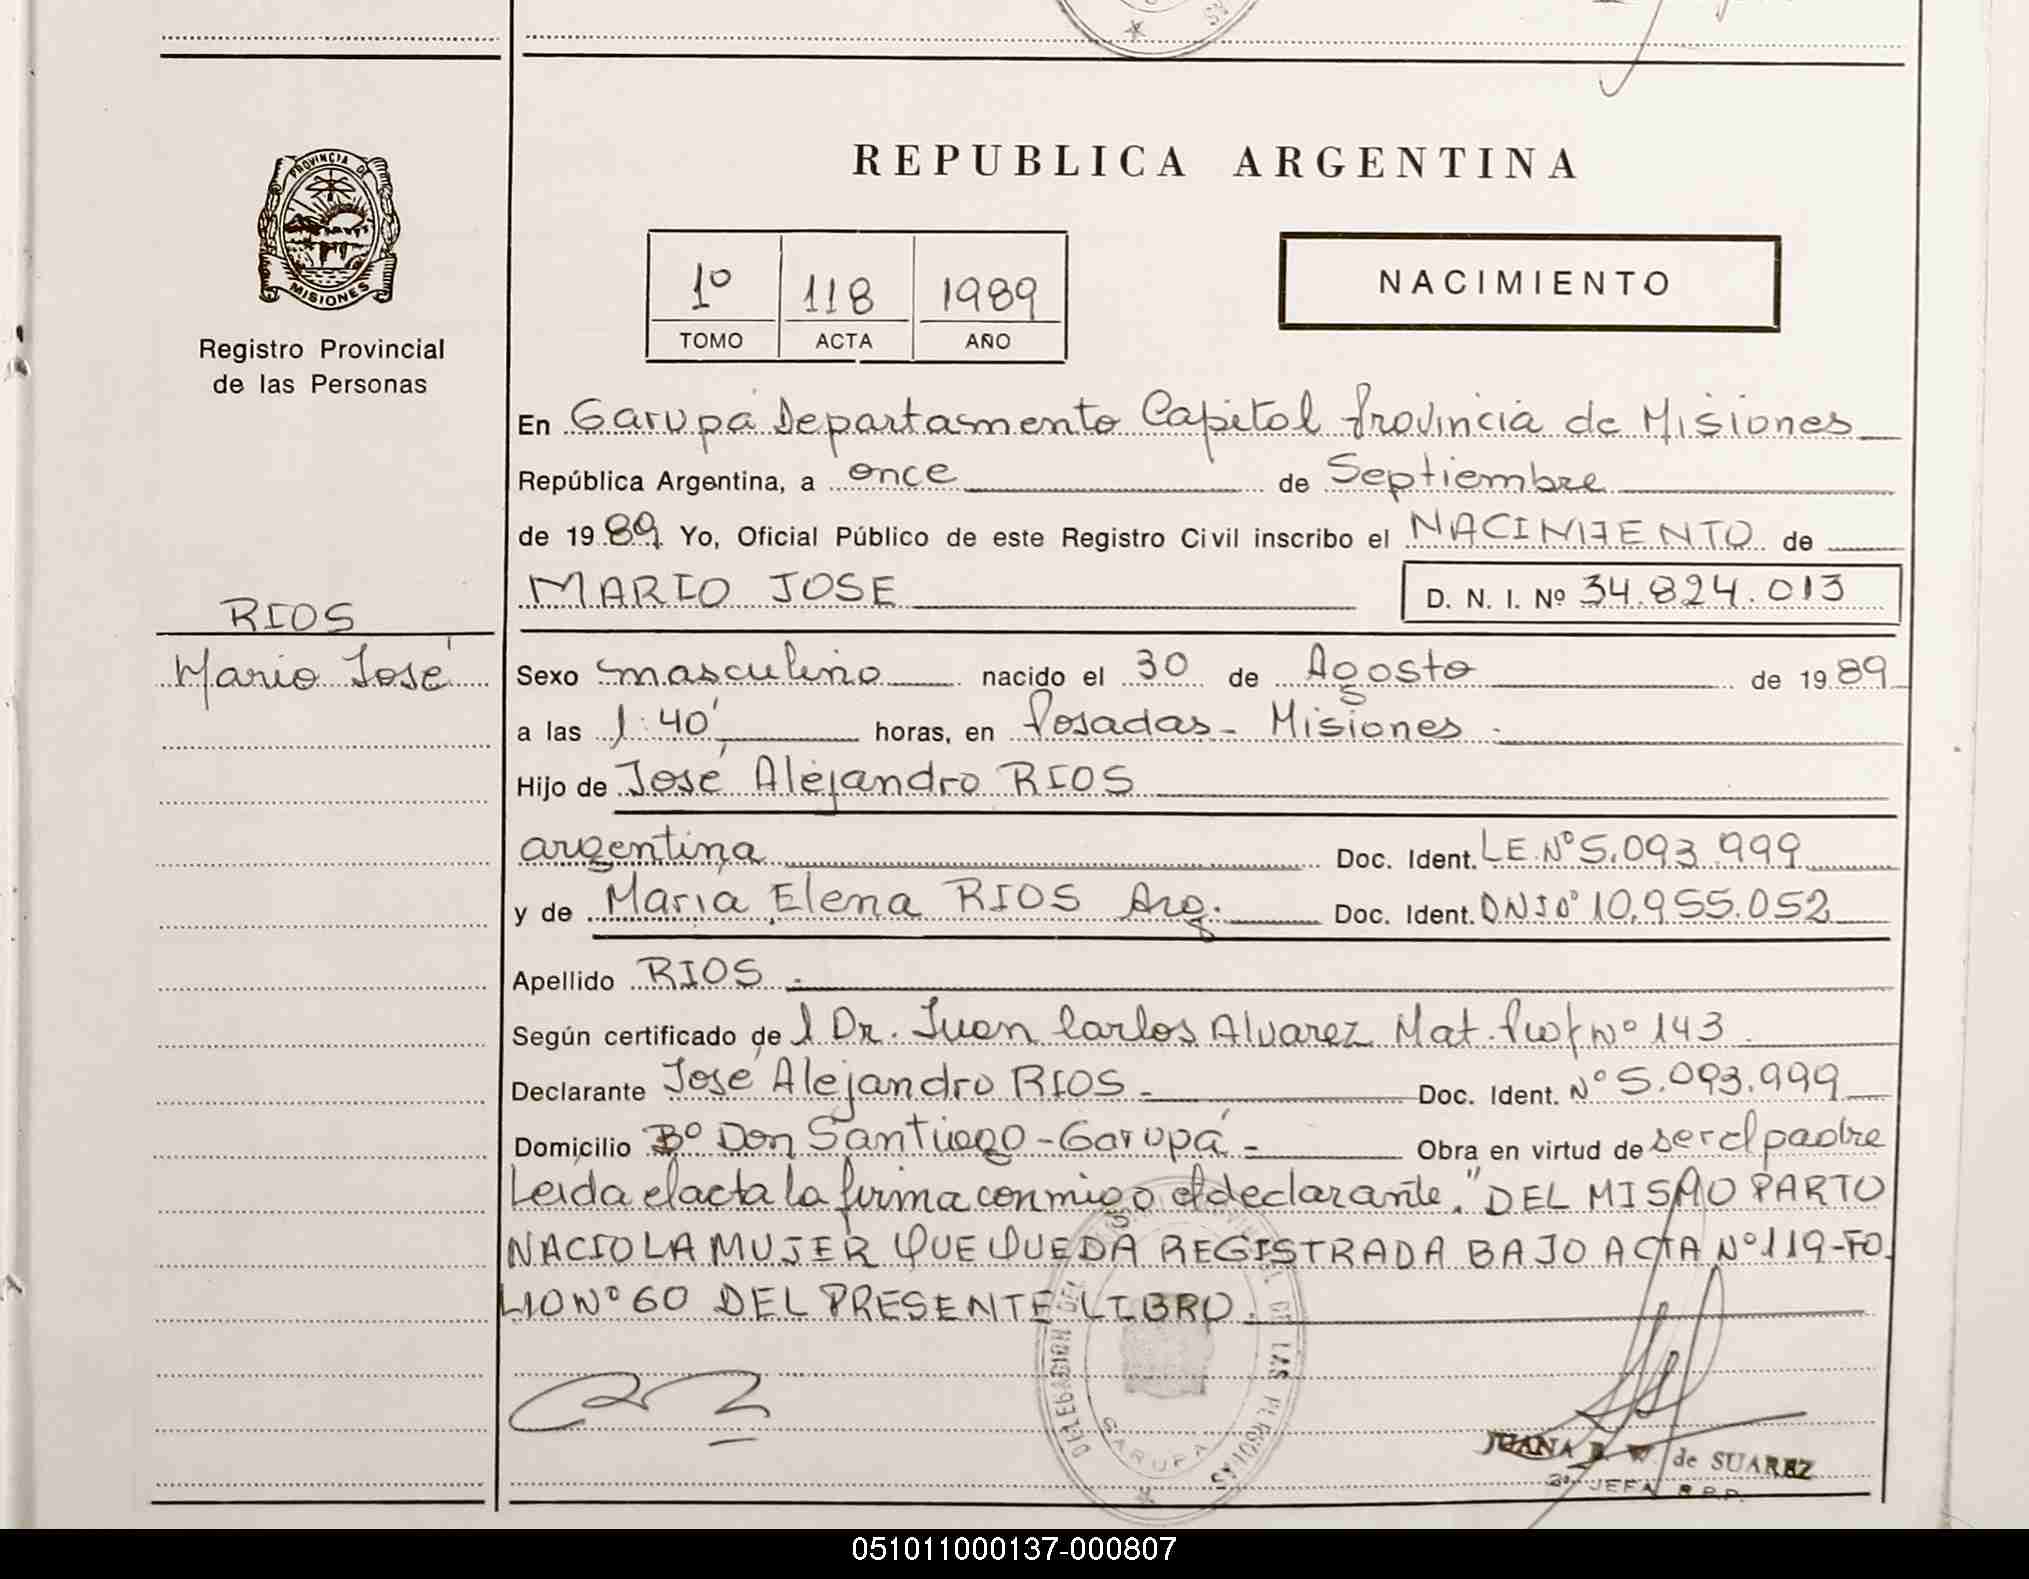 REPUBLICA ARGENTINA
PROVINCIA DE
MISIONES
Registro Provincial
de las Personas
1º 118 1989
TOMO ACTA AÑO
NACIMIENTO
En Garupá Departamento Capital Provincia de Misiones
República Argentina, a once de Septiembre
de 1989 Yo, Oficial Público de este Registro Civil inscribo el NACIMIENTO de
MARIO JOSE D. N. I. Nº 34.824.013
RIOS
Mario José
Sexo masculino nacido el 30 de Agosto de 1989
a las 1:40' horas, en Posadas - Misiones.
Hijo de José Alejandro RIOS
argentina Doc. Ident. LE.Nº 5.093.999
y de María Elena RIOS Arg. Doc. Ident. DNI Nº 10.955.052
Apellido RIOS.
Según certificado de l Dr. Juan Carlos Alvarez Mat. Prof Nº 143
Declarante José Alejandro RIOS - Doc. Ident. Nº 5.093.999
Domicilio Bº Don Santiago - Garupá - Obra en virtud de ser el padre
Leida el acta la firma conmigo el declarante. "DEL MISMO PARTO
NACIO LA MUJER QUE QUEDA REGISTRADA BAJO ACTA Nº 119-FO
LIO Nº 60 DEL PRESENTE LIBRO.
DELEGACION DEL REGISTRO PROVINCIAL DE LAS PERSONAS
GARUPA
JUANA E. W. de SUAREZ
JEFA R.P.P.
051011000137-000807